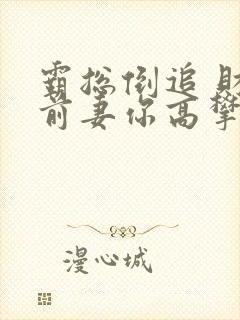 霸总倒追
前妻你高攀
漫心城